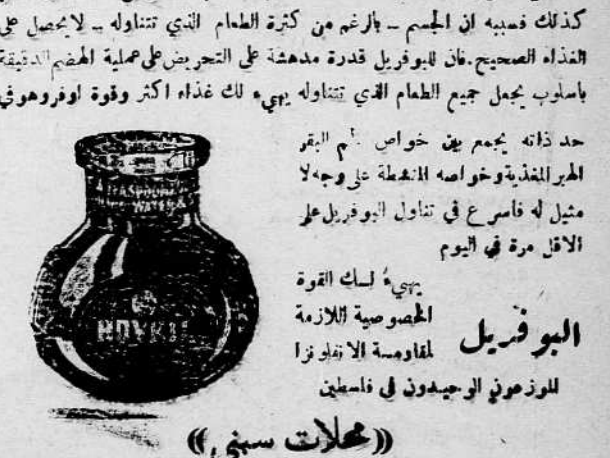 كذلك فسببه ان الجسم – بالرغم من كثرة الطعام الذي تتناوله – لا يحصل على
الغذاء الصحيح. فان للبوفريل قدرة مدهشة على التحريض على عملية الهضم الدقيقة
باسلوب يجعل جميع الطعام الذي تتناوله يهيء لك غذاء اكثر وقوة اوفر وهو في
حد ذاته يجمع بين خواص لحم البقر
الهبر المغذية وخواصه المنشطة على وجه لا
مثيل له فاسرع في تناول البوفريل على
الاقل مرة في اليوم
يهيءُ لك القوة
الخصوصية اللازمة
البوفريل
لمقاومة الانفلونزا
للوزعون الوحيدون في فلسطين
((محلات سبني))
WATER